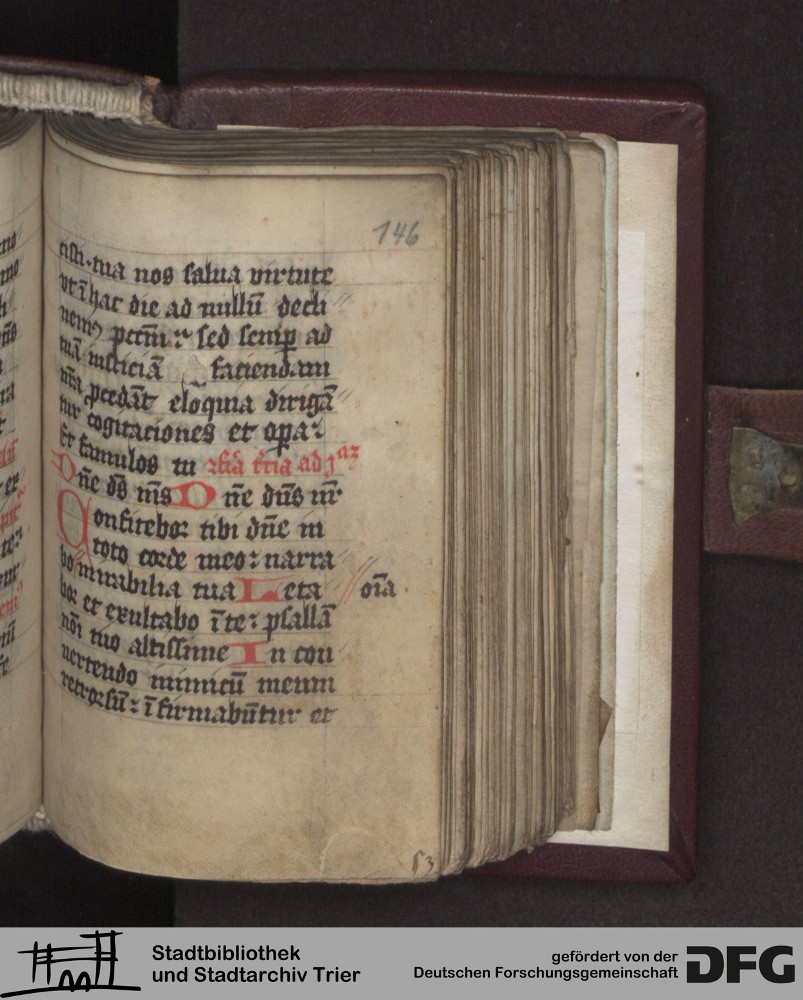 146
cisti·tua nos salua virtute
vt ī hac die ad nullū decli
nemꝰ pctm̄: sed semꝑ ad
tuā iusticiā faciendam
nr̄a ꝓcedāt eloquia dirigā
tur cogitaciones et oꝑa:
Et famulos tu
Dn̄e ds̄ nr̄s Dn̄e dn̄s nr̄
Confitebor tibi dn̄e in
toto corde meo: narra
bo mirabilia tua Leta // oīa
bor et exultabo ī te: psallā
nōi tuo altissime In con
uertendo inimicū meum
retrorsū: ī firmabūtur et
53
Stadtbibliothek
und Stadtarchiv Trier
gefördert von der
Deutschen Forschungsgemeinschaft
DFG